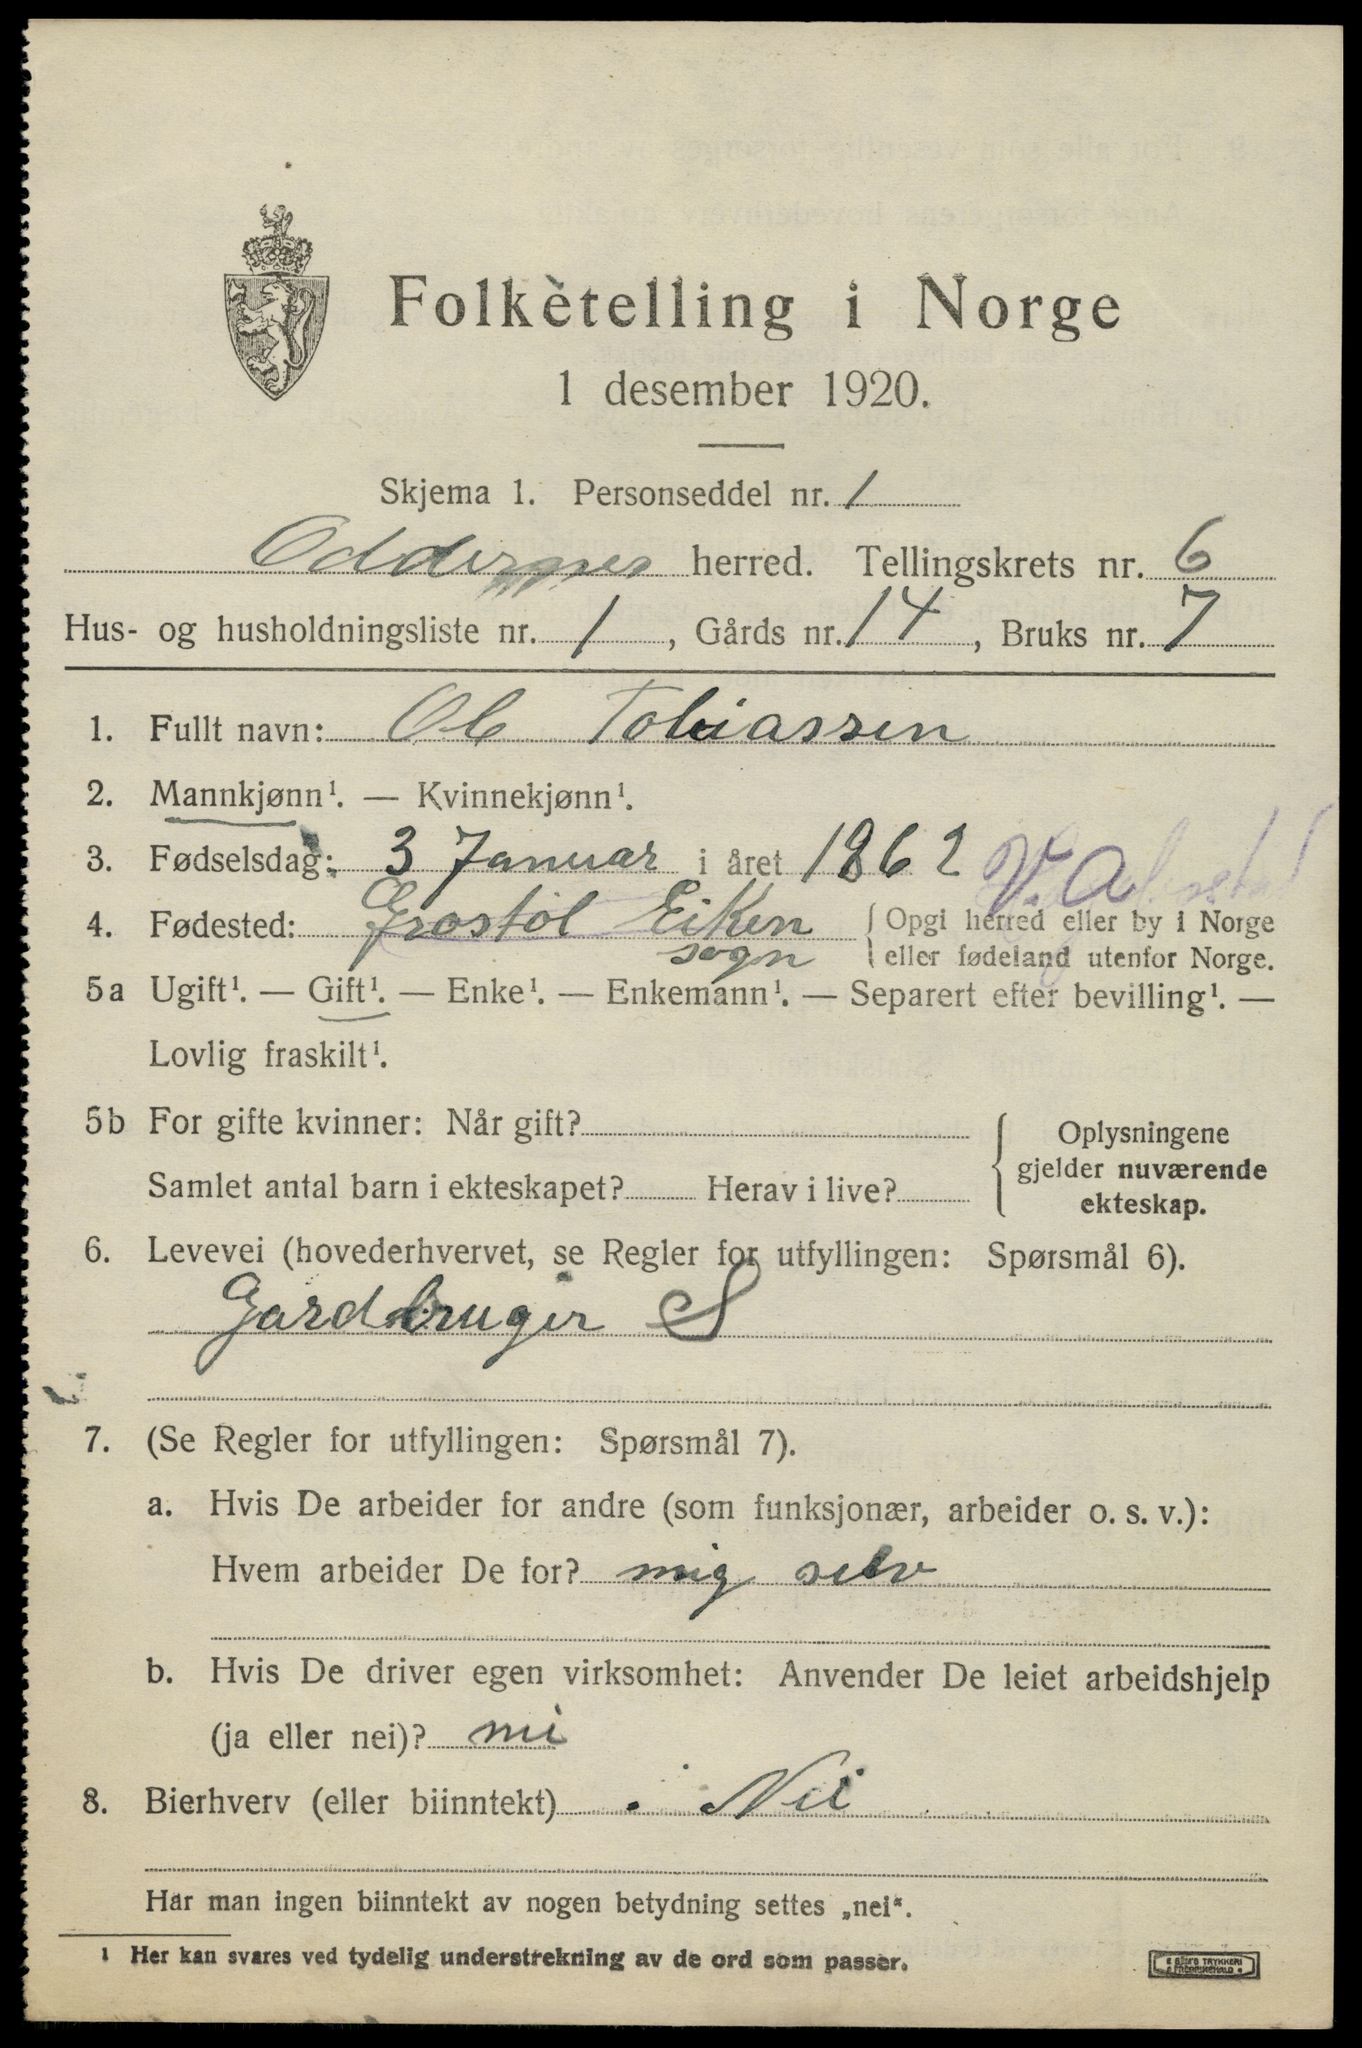 Folketelling i Norge
1 desember 1920.
Skjema 1. Personseddel nr. 1
Oddernes herred. Tellingskrets nr. 6
Hus- og husholdningsliste nr. 1, Gårds nr. 14, Bruks nr. 7
1. Fullt navn: Ole Tobiassen
2. Mannkjønn¹. — Kvinnekjønn¹.
3. Fødselsdag: 3 Januar i året 1862 V. A
4. Fødested: Frøstöl Eiken { Opgi herred eller by i Norge
sogn eller fødeland utenfor Norge.
5a Ugift¹. — Gift¹. — Enke¹. — Enkemann¹. — Separert efter bevilling¹. —
Lovlig fraskilt¹.
5b For gifte kvinner: Når gift? { Oplysningene
gjelder nuværende
Samlet antal barn i ekteskapet? Herav i live? ekteskap.
6. Levevei (hovederhvervet, se Regler for utfyllingen: Spørsmål 6).
Gardbruger S
7. (Se Regler for utfyllingen: Spørsmål 7).
a. Hvis De arbeider for andre (som funksjonær, arbeider o. s. v.):
Hvem arbeider De for? mig selv
b. Hvis De driver egen virksomhet: Anvender De leiet arbeidshjelp
(ja eller nei)? nei
8. Bierhverv (eller biinntekt) Nei
Har man ingen biinntekt av nogen betydning settes „nei".
¹ Her kan svares ved tydelig understrekning av de ord som passer.